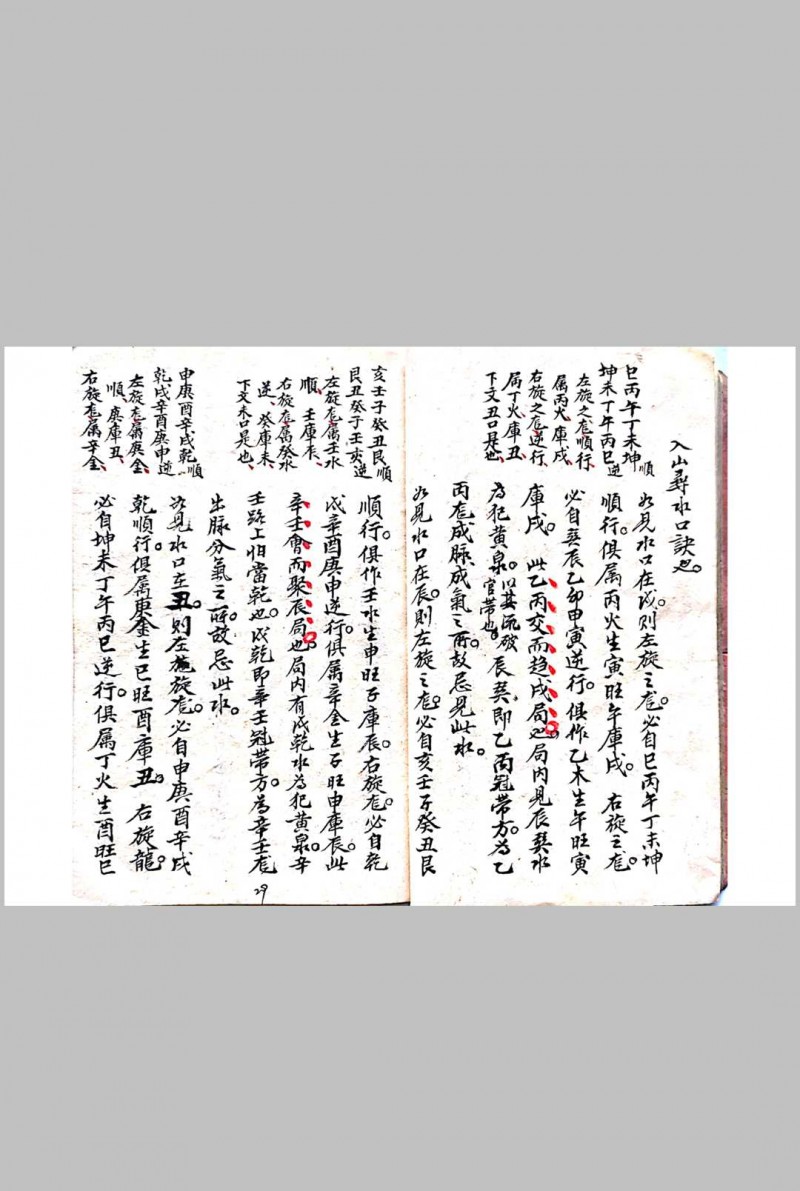 入山尋水口訣也。
巳丙午丁未坤順
坤未丁午丙巳逆
左旋之龙順行
属丙火庫戌
右旋之龙逆行
局丁火庫丑
下文丑口是也
如見水口在戌。則左旋之龙。必自巳丙午丁未坤
順行。俱属丙火生寅旺午庫戌。右旋之龙。
必自巽辰乙卯申寅逆行。俱作乙木生午旺寅
庫戌。此乙丙交而趋戌局也。局内見辰巽水
為犯黄泉。以其流破官带也。辰巽即乙丙冠带方。為乙
丙龙成脉成氣之所。故忌見此水。
如見水口在辰。則左旋之龙。必自亥壬子癸丑艮
亥壬子癸丑艮順
艮丑癸子壬亥逆
左旋龙属壬水
順、壬庫辰、
右旋龙属癸水
逆、癸庫未、
下文未口是也、
順行。俱作壬水生申旺子庫辰。右旋龙。必自乾
戌辛酉庚申逆行。俱属辛金生子旺申庫辰。此
辛壬會而聚辰局也。局内有戌乾水為犯黄泉。辛
壬路上怕當乾也。戌乾即辛壬冠带方。為辛壬龙
出脉分氣之所。故忌此水。
如見水口在丑。則左旋龙。必自申庚酉辛戌
乾順行。俱属庚金生巳旺酉庫丑。右旋龍。
必自坤未丁午丙巳逆行。俱属丁火生酉旺巳
申庚酉辛戌乾順
乾戌辛酉庚申逆
左旋龙属庚金
順、庚庫丑、
右旋龙属辛金、
29